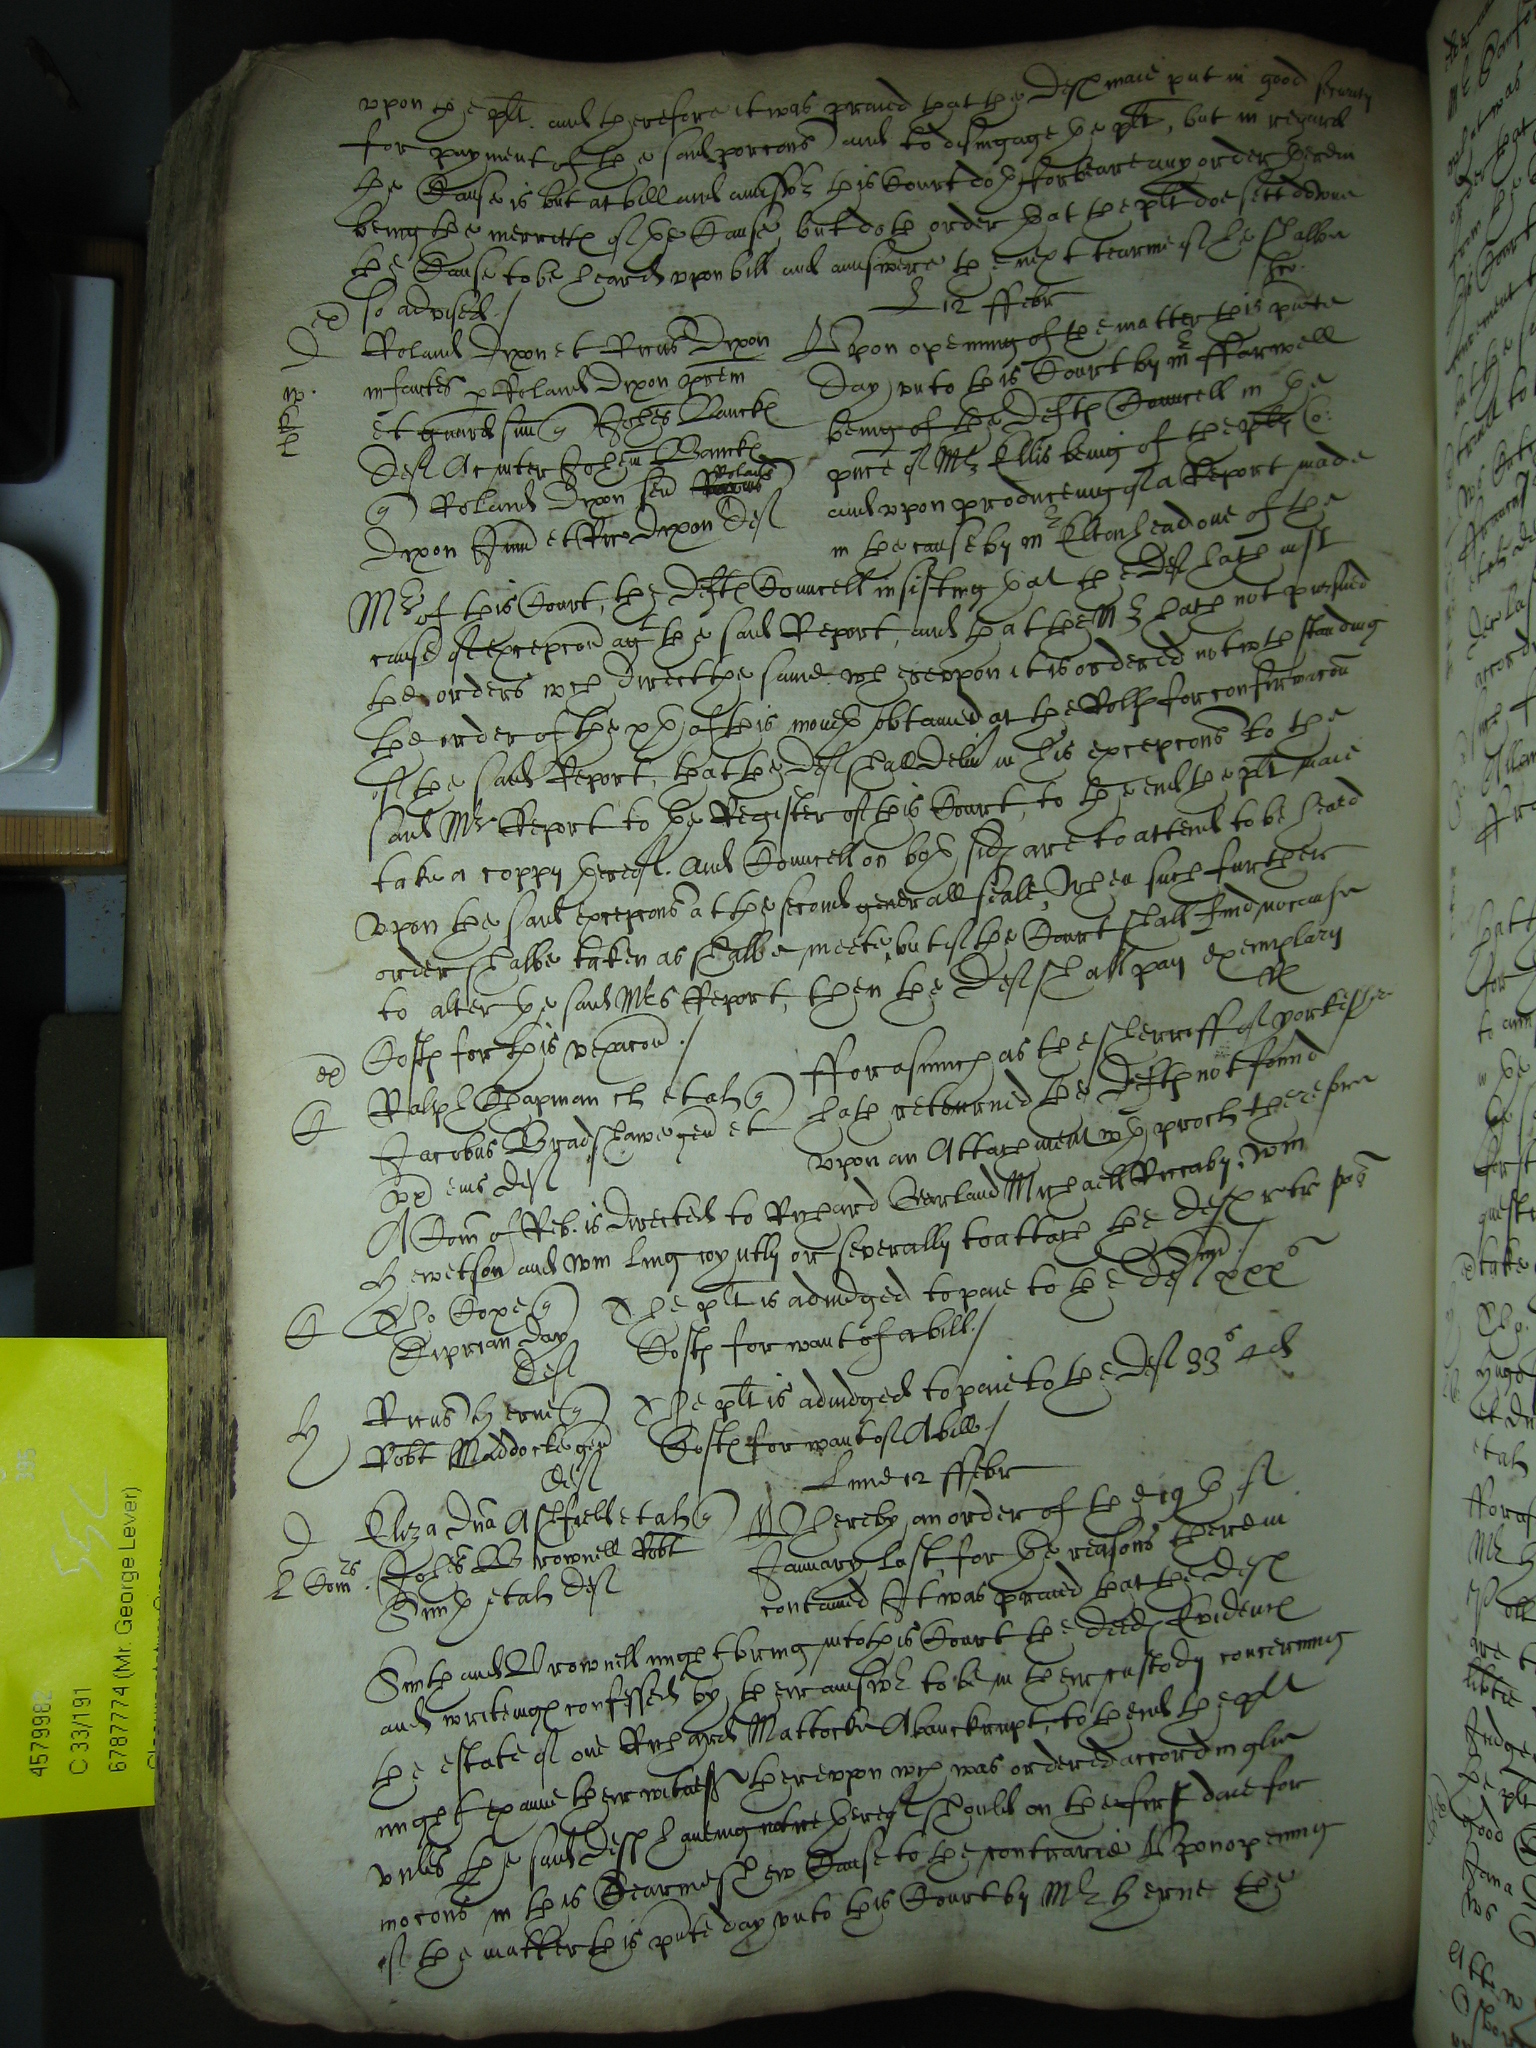 vpon the plt. and therefore it was praied that the Deft maie put in good security
for payment of the said porcons and to disingage the plt, but in regard
the Cause is but at bill and answr this Court doth forbeare any order herein
being the merritts of the Cause, but doth order that the plt doe sett downe
the Cause to be heard vpon bill and answere the next tearme if he shalbe
so advised./
L 12 ffebr
Roland Dixon et Ricus Dixon
infantes p Roland Dixon
et guard suu Johes Banck
Def Ac inter Johem Banck
Roland Dixon sen Roland
Dixon Jun et Ricu Dixon Def
Vpon opening of the matter this pnte
day vnto this Court by mr ffarwell
being of the Defts Councell in the
pnce of Mr Ellis being of the plts Co:
and vpon produceing of a Report made
in the cause by mr Eltonhead one of the
Mrs of this Court, the Defts Councell insisting that the Def hath iust
cause of excepcon agt the said Report, and that the Mr hath not pursued
the orders wch direct the same. wherevpon it is ordered notwthstanding
the order of the xth of this moneth obtained at the Rolls for confirmacon
of the said Report, that the Def shall delivr in his excepcons to the
said Mrs Report to the Register of this Court, to the end the plt maie
take a coppy thereof. And Councell on both sides are to attend to be heard
vpon the said excepcons at the second generall seale, When such further
order shalbe taken as shalbe meete, but if the Court shall find no cause
to alter the said Mrs Report, then the Def shall pay exemplary
Costs for this vexacon./
Ralph Chapman et al
Jacobus Bradshawe gen et
vx eius Def
fforasmuch as the sherriff of yorkeshr
hath returned the Defts not found
vpon an Attachment wth proclr therefore
A Com of Reb. is directed to Richard Garland Michaell Riccaby, Wm
Hewetson and Wm Ling ioyntly or severally to attach the Defts
Tho Coxe
Ciprian Day
Def
The plt is adiudged to paie to the Def xxxs
Costs for want of a bill./
Ricus Herne
Robt Maddocke gen
Def
The plt is adiudged to paie to the Def 33s 4d
Costs for want of A bill./
Lune 12 ffebr
Eliza Dna Ashfield et al
Johes Brownell Robt
Smith et al Def
Whereby an order of the 19th of
January last for the reasons therein
contained It was praied that the Defts
Smith and Brownell might bring into this Court the deeds Evidences
and writeings confessed by their answr to be in their custody concerning
the estate of one Richard Mattocke A banckrupt, to thend the plt
might examine their witnesses therevpon wch was ordered accordinglie
vnles the said Defts haveing notice thereof should on the first daie for
mocons in this Tearme shew Cause to the contrarie Vpon opening
of the matter this pnte day vnto this Court by Mr Herne the
4579982
C 33/191
6787774 (Mr. George Lever)